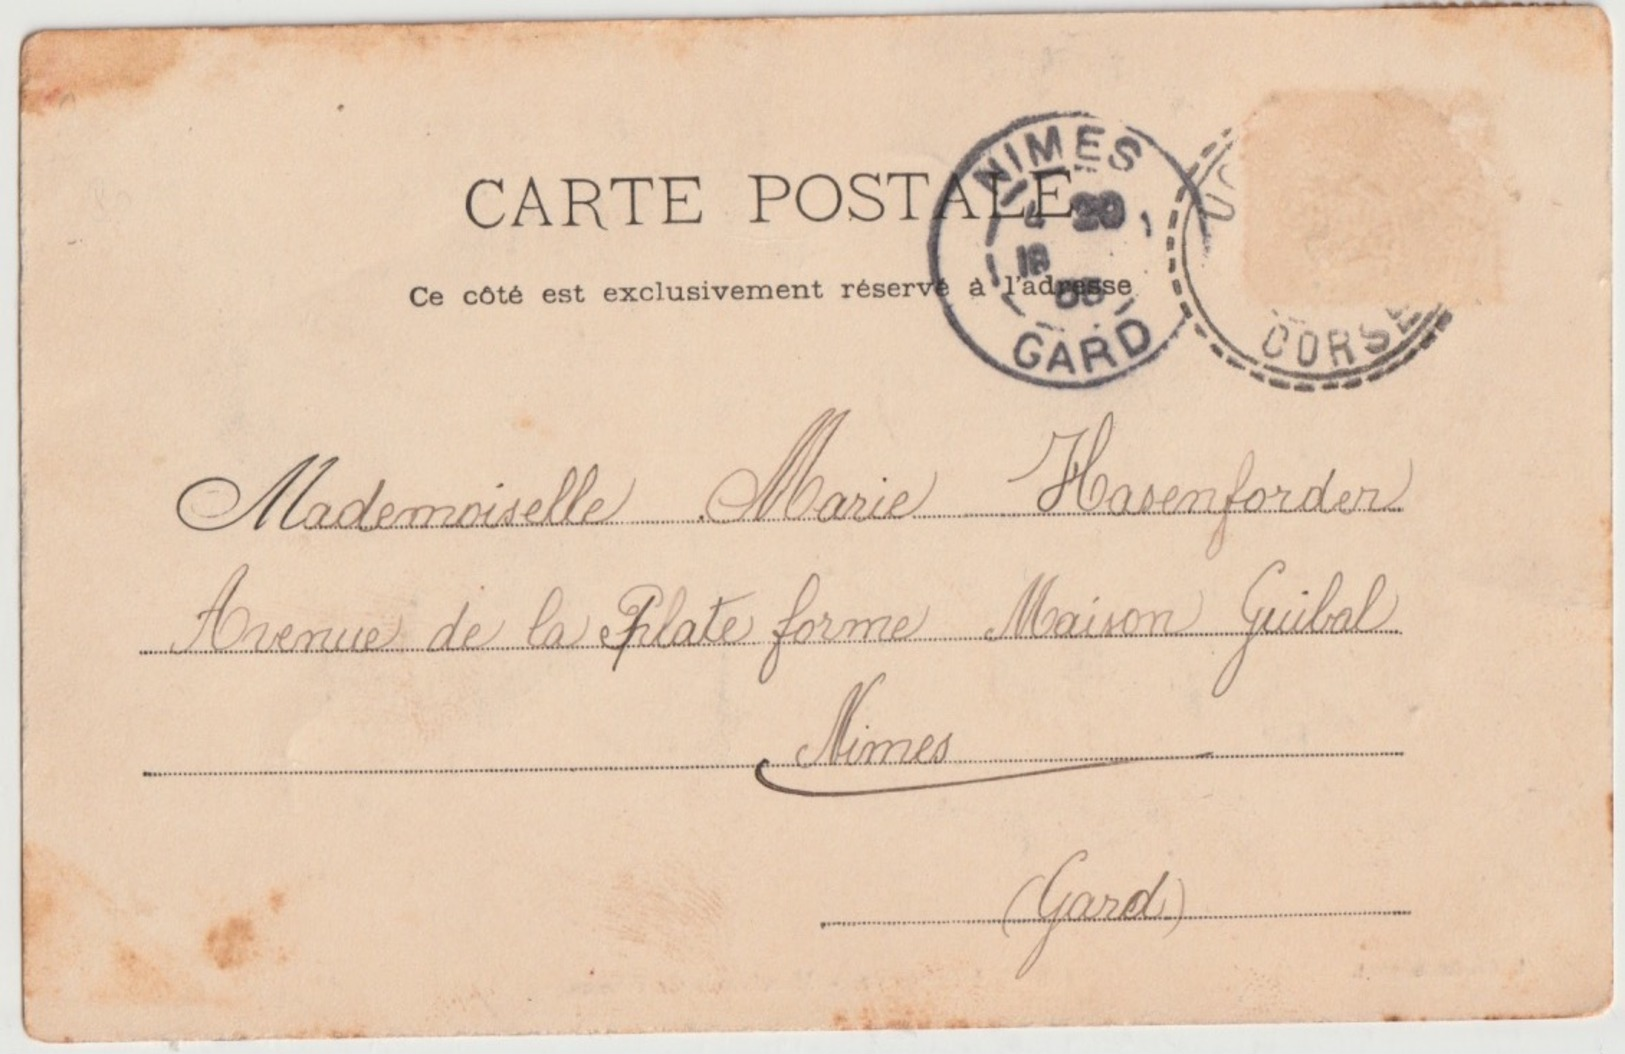 CARTE POSTALE
Ce côté est exclusivement réservé à l'adresse
NIMES
20
18
05
GARD
CORSE
Mademoiselle Marie Hasenforder
Avenue de la Plate forme Maison Guibal
Nimes
(Gard)